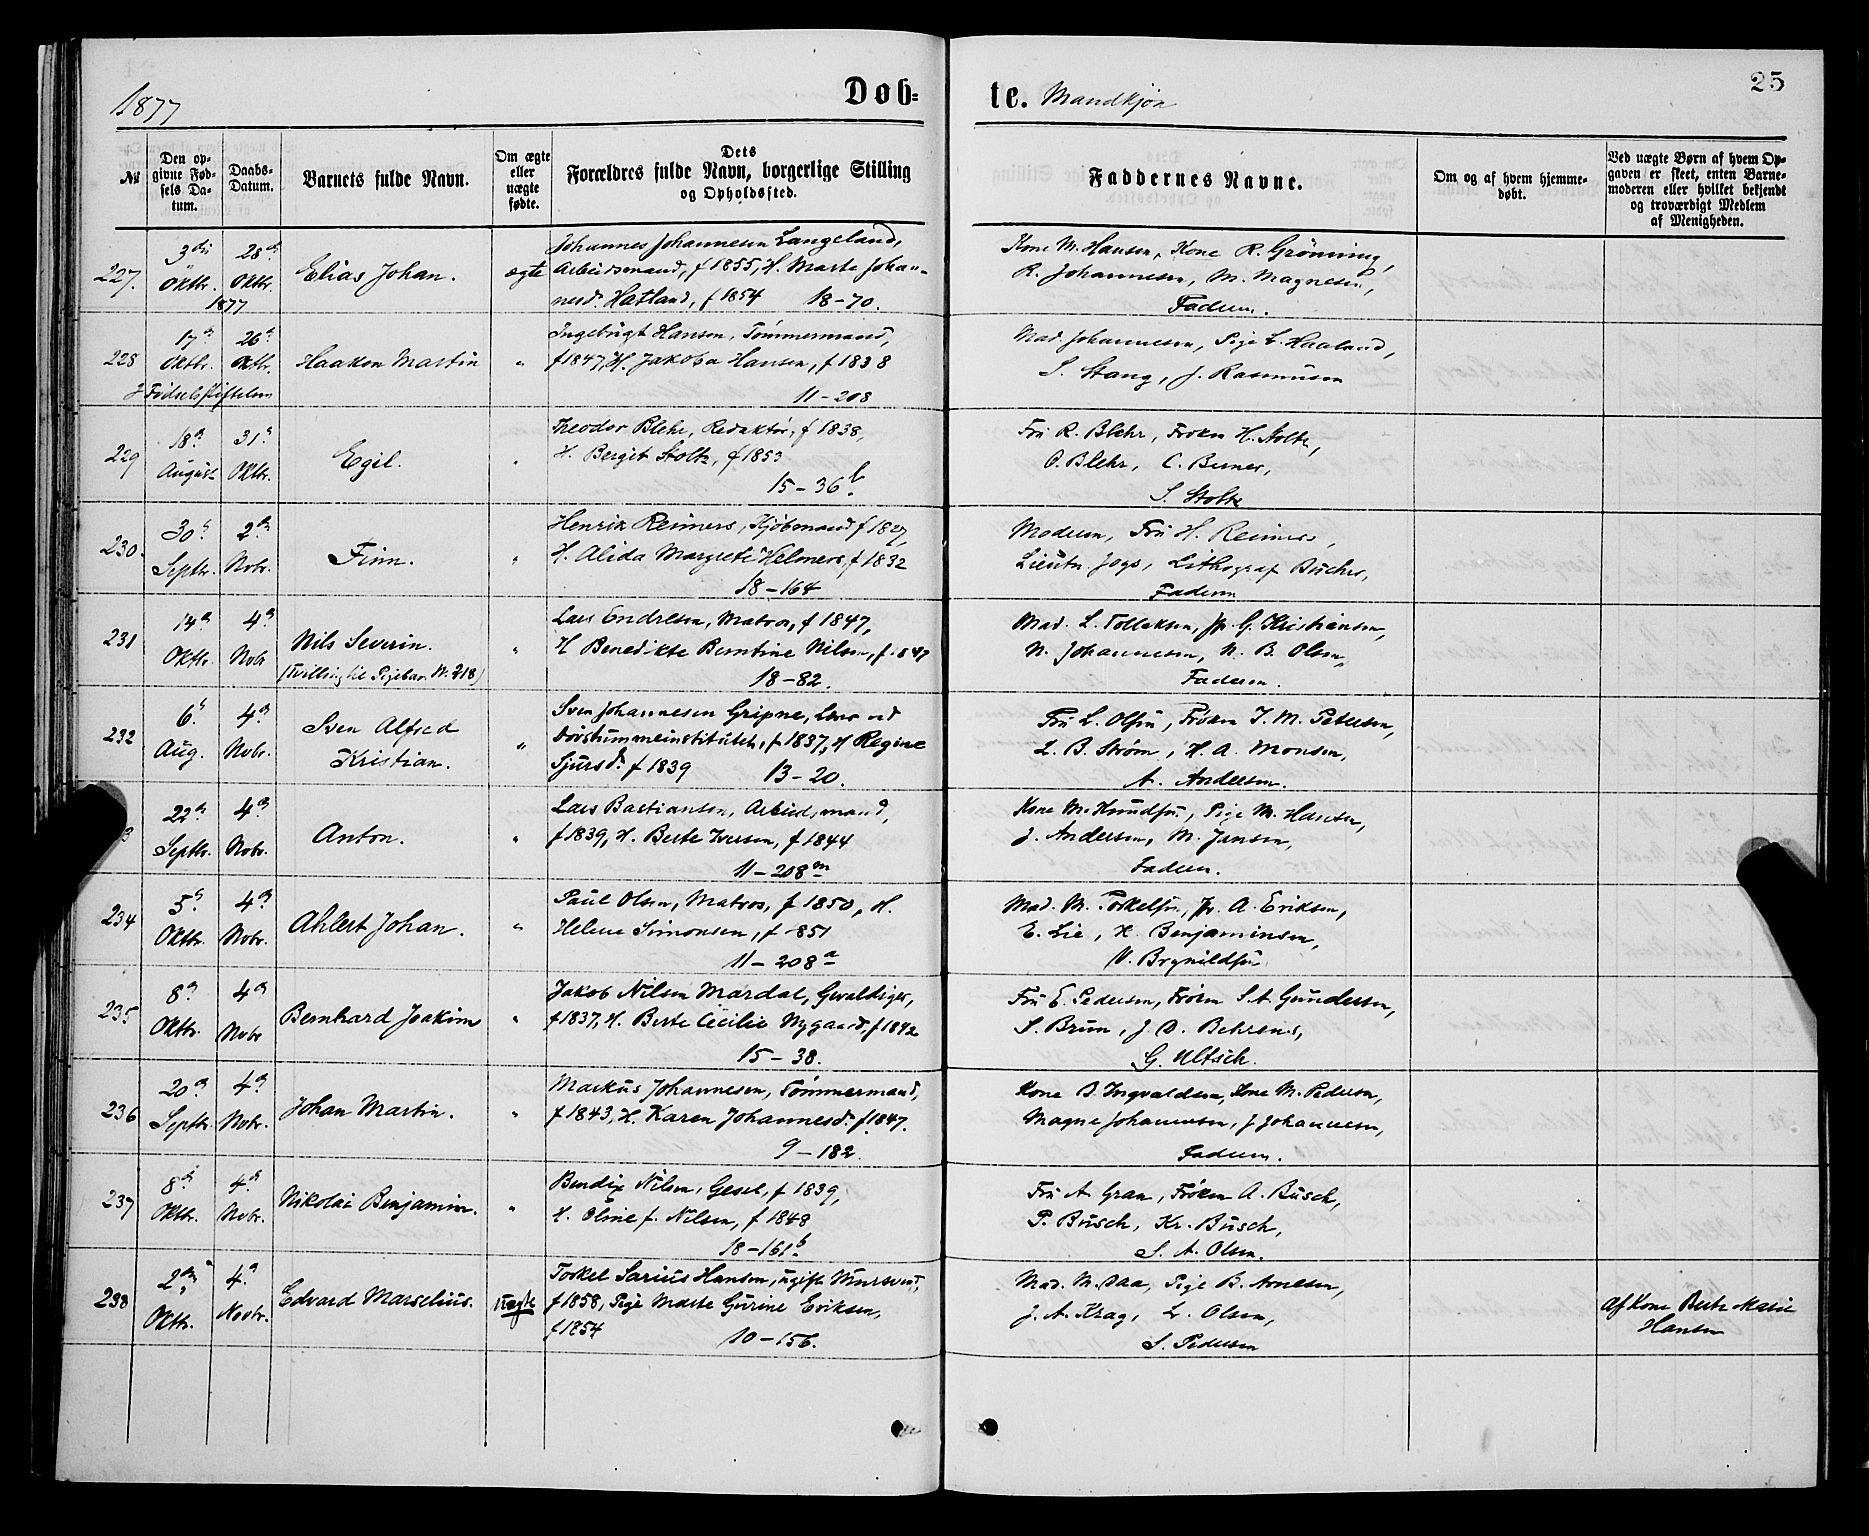 1877
Døb=
te. Mandkjøn
25
No
Den op-
givne Fød-
sels Da-
tum.
Daabs-
Datum.
Barnets fulde Navn.
Om ægte
eller
uægte
fødte.
Dets
Forældres fulde Navn, borgerlige Stilling
og Opholdssted.
Faddernes Navne.
Om og af hvem hjemme-
døbt.
Ved uægte Børn af hvem Op-
gaven er skeet, enten Barne-
moderen eller hvilket bekjendt
og troværdigt Medlem
af Menigheden.
227.
3die
Oktbr.
28de
Oktbr.
1877
Elias Johan.
ægte
Johannes Johannesen Langeland,
Arbeidsmand, f 1855, H. Marta Johan-
nesd. Hatland, f 1854 18-70.
Kone M. Hansen, Kone R. Grønning,
R. Johannesen, M. Magnesen,
Faderen.
228
17de
Oktbr.
26de
Oktbr.
I Fødselsstiftelsen
Haakon Martin
"
Ingebrigt Hansen, Tømmermand,
f 1847, H. Jakoba Hansen, f 1838
11-208
Mad. Johannesen, Pige L. Haaland,
S. Stang, J. Rasmusen
229
18de
August
31te
Oktbr.
Egil.
"
Theodor Blehr, Redaktør, f 1838,
H. Berget Stoltz, f 1853
15-36 b.
Fru R. Blehr, Frøken H. Stoltz,
O. Blehr, C. Berner,
S. Stoltz
230.
30te
Septbr.
2den
Nobr.
Finn.
"
Henrik Reimers, Kjøbmand f 1827,
H. Alida Margrete Helmers, f 1832
18-164
Moderen, Fru H. Reimers,
Lieutn. , Lithograf Bucher,
Faderen
231
14de
Oktbr.
4de
Nobr
Nils Severin.
(Tvilling til Pigebarn N. 218)
"
Lars Endresen, Matros, f 1847,
H Benedikte Berntine Nilsen, f. 847
18-82.
Mad. L. Tollaksen, Jfr. G. Kristiansen,
N. Johannesen, N. B. Olsen,
Faderen.
232
6te
Aug.
4de
Nobr.
Sven Alfred
Kristian.
"
Sven Johannesen Gripne, Lærer ved
Døvstummeinstitutet, f 1837, H Regine
Sjursd. f 1839 13-20.
Fru L. Olsen, Frøken J. M. Petersen,
L. B. Strøm, H. A. Monsen,
A. Andersen.
3
22de
Septbr.
4de
Nobr.
Anton.
"
Lars Bastiansen, Arbeidsmand,
f 1839, H. Berte Iversen, f 1844
11-208 m
Kone M. Knudsen, Pige M. Hansen,
J. Andersen, M. Jansen,
Faderen.
234
5te
Oktbr.
4de
Nobr.
Ahlert Johan.
"
Paul Olsen, Matros, f 1850, H.
Helene Simonsen, f 851
11-208 a
Mad. M. Torkelsen, Jfr. A. Eriksen,
E. Lie, H. Benjaminsen,
N. Brynildsen
235
8de
Oktbr.
4de
Nobr
Bernhard Joakim
"
Jakob Nilsen Mardal, Gevaldiger,
f 1837, H. Berte Cecilie Nygaard, f 1842
15-38.
Fru E. Pedersen, Frøken S. A. Gundersen,
S. Brun, J. D. Behrens,
G. Ultsch.
236
20de
Septbr.
4de
Nobr.
Johan Martin.
"
Markus Johannesen, Tømmermand,
f 1843, H. Karen Johannesd. f. 1847.
9-182.
Kone B. Ingvaldsen, Kone M. Pedersen,
Magne Johannesen, J Johannesen,
Faderen.
237
8de
Oktbr.
4de
Nobr.
Nikolai Benjamin.
"
Bendix Nilsen, Gesel, f 1839,
H. Oline f. Nilsen, f 1848
18-161 b.
Fru A. Gran, Frøken A. Busch,
P. Busch, Kr. Busch,
S. A. Olsen.
238
2den
Oktbr.
4de
Novbr.
Edvard Marselius.
Uægte
Torkel Sarius Hansen, ugift Mursvend,
f 1858, Pige Marte Gurine Eriksen,
f 1854 10-156.
Mad. M. Daa, Pige B. Arnesen,
J. A. Krag, L. Olsen,
S. Pedersen
Af Kone Berte Marie
Hansen